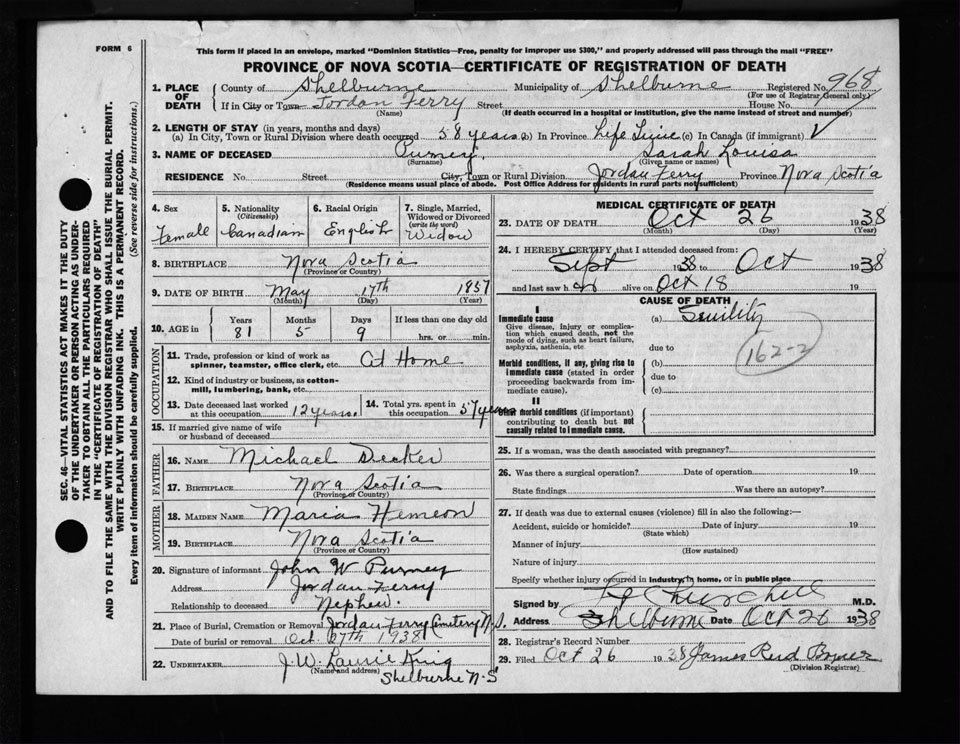 FORM 6
This form if placed in an envelope, marked "Dominion Statistics—Free, penalty for improper use $300," and properly addressed will pass through the mail "FREE"
PROVINCE OF NOVA SCOTIA—CERTIFICATE OF REGISTRATION OF DEATH
SEC. 46—VITAL STATISTICS ACT MAKES IT THE DUTY
OF THE UNDERTAKER OR PERSON ACTING AS UNDER-
TAKER TO OBTAIN ALL THE PARTICULARS REQUIRED
IN THE "CERTIFICATE OF REGISTRATION OF DEATH"
AND TO FILE THE SAME WITH THE DIVISION REGISTRAR WHO SHALL ISSUE THE BURIAL PERMIT.
WRITE PLAINLY WITH UNFADING INK. THIS IS A PERMANENT RECORD.
Every item of information should be carefully supplied. (See reverse side for instructions.)
1. PLACE OF DEATH County of Shelburne Municipality of Shelburne Registered No. 968
(For use of Registrar General only)
If in City or Town Jordan Ferry Street House No.
(Name) (If death occurred in a hospital or institution, give the name instead of street and number)
2. LENGTH OF STAY (in years, months and days)
(a) In City, Town or Rural Division where death occurred 58 years (b) In Province Life Time (c) In Canada (if immigrant) √
3. NAME OF DECEASED Purney, Sarah Louisa
(Surname) (Given name or names)
RESIDENCE No. Street City, Town or Rural Division Jordan Ferry Province Nova Scotia
(Residence means usual place of abode. Post Office Address for residents in rural parts not sufficient)
4. Sex Female
5. Nationality (Citizenship) Canadian
6. Racial Origin English
7. Single, Married, Widowed or Divorced (write the word) Widow
8. BIRTHPLACE Nova Scotia
(Province or Country)
9. DATE OF BIRTH May 17th 1857
(Month) (Day) (Year)
10. AGE in Years Months Days If less than one day old
81 5 9 hrs. or min.
OCCUPATION
11. Trade, profession or kind of work as spinner, teamster, office clerk, etc. At Home
12. Kind of industry or business, as cotton-mill, lumbering, bank, etc.
13. Date deceased last worked at this occupation 12 years.
14. Total yrs. spent in this occupation 57 years
15. If married give name of wife or husband of deceased
FATHER
16. NAME Michael Decker
17. BIRTHPLACE Nova Scotia
(Province or Country)
MOTHER
18. MAIDEN NAME Maria Hemeon
19. BIRTHPLACE Nova Scotia
(Province or Country)
20. Signature of informant John W Purney
Address Jordan Ferry
Relationship to deceased Nephew.
21. Place of Burial, Cremation or Removal Jordan Ferry Cemetery N.S.
Date of burial or removal Oct. 27th 1938
22. UNDERTAKER J. W. Laurie King
(Name and address) Shelburne N-S
MEDICAL CERTIFICATE OF DEATH
23. DATE OF DEATH Oct 26 1938
(Month) (Day) (Year)
24. I HEREBY CERTIFY that I attended deceased from:
Sept 1938 to Oct 1938
and last saw her alive on Oct 18 19
CAUSE OF DEATH
I
Immediate cause
Give disease, injury or complication which caused death, not the mode of dying, such as heart failure, asphyxia, asthenia, etc.
(a) Senility
due to
162-2
Morbid conditions, if any, giving rise to immediate cause (stated in order proceeding backwards from immediate cause).
(b)
due to
(c)
II
Other morbid conditions (if important) contributing to death but not causally related to immediate cause.
25. If a woman, was the death associated with pregnancy?
26. Was there a surgical operation? Date of operation 19
State findings Was there an autopsy?
27. If death was due to external causes (violence) fill in also the following:—
Accident, suicide or homicide? Date of injury 19
(State which)
Manner of injury
(How sustained)
Nature of injury
Specify whether injury occurred in industry, in home, or in public place
Signed by Churchill M.D.
Address Shelburne Date Oct 26 1938
28. Registrar's Record Number
29. Filed Oct 26 1938 James Reid
(Division Registrar)